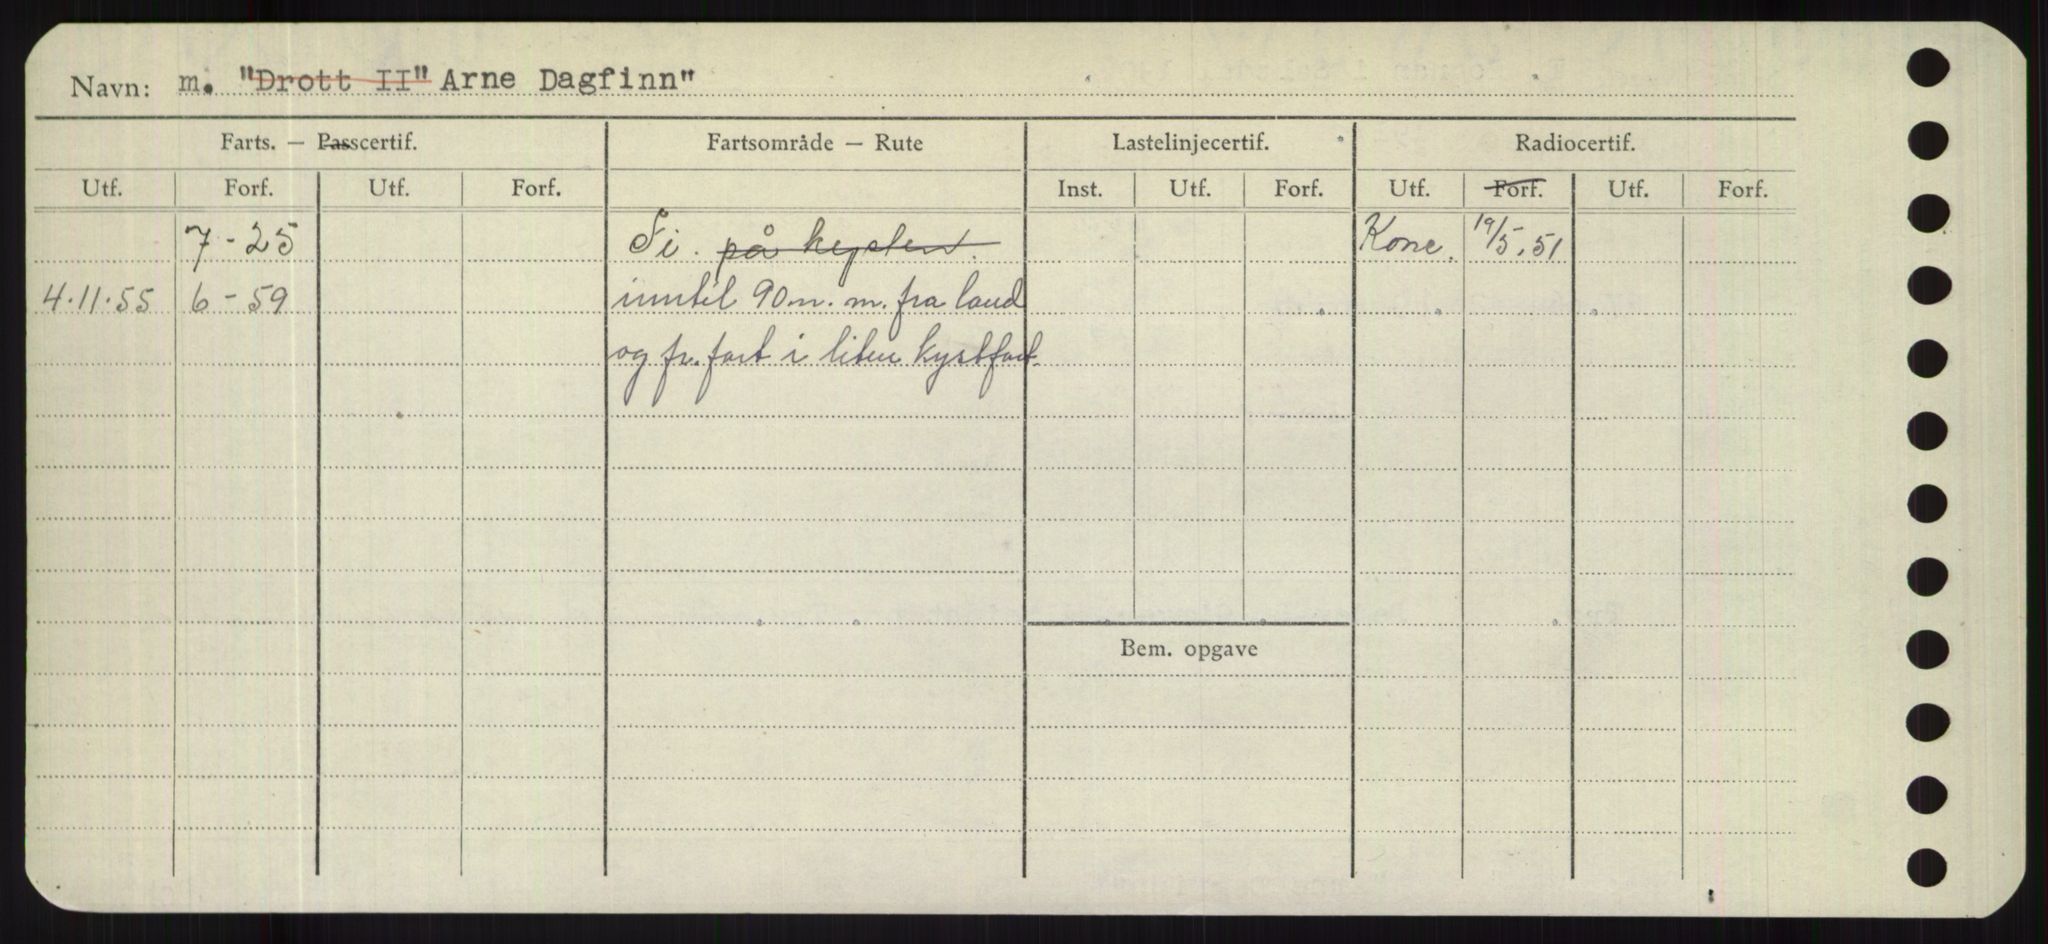 Navn: m. "Drott II" Arne Dagfinn"
Farts. — Passcertif. Fartsområde — Rute Lastelinjecertif. Radiocertif.
Utf. Forf. Utf. Forf. Inst. Utf. Forf. Utf. Forf. Utf. Forf.
7-25 Si. på kysten. Konc. 19/5.51
4.11.55 6-59 inntil 90 n. m. fra land
og fr. fart i liten kystfart.
Bem. opgave